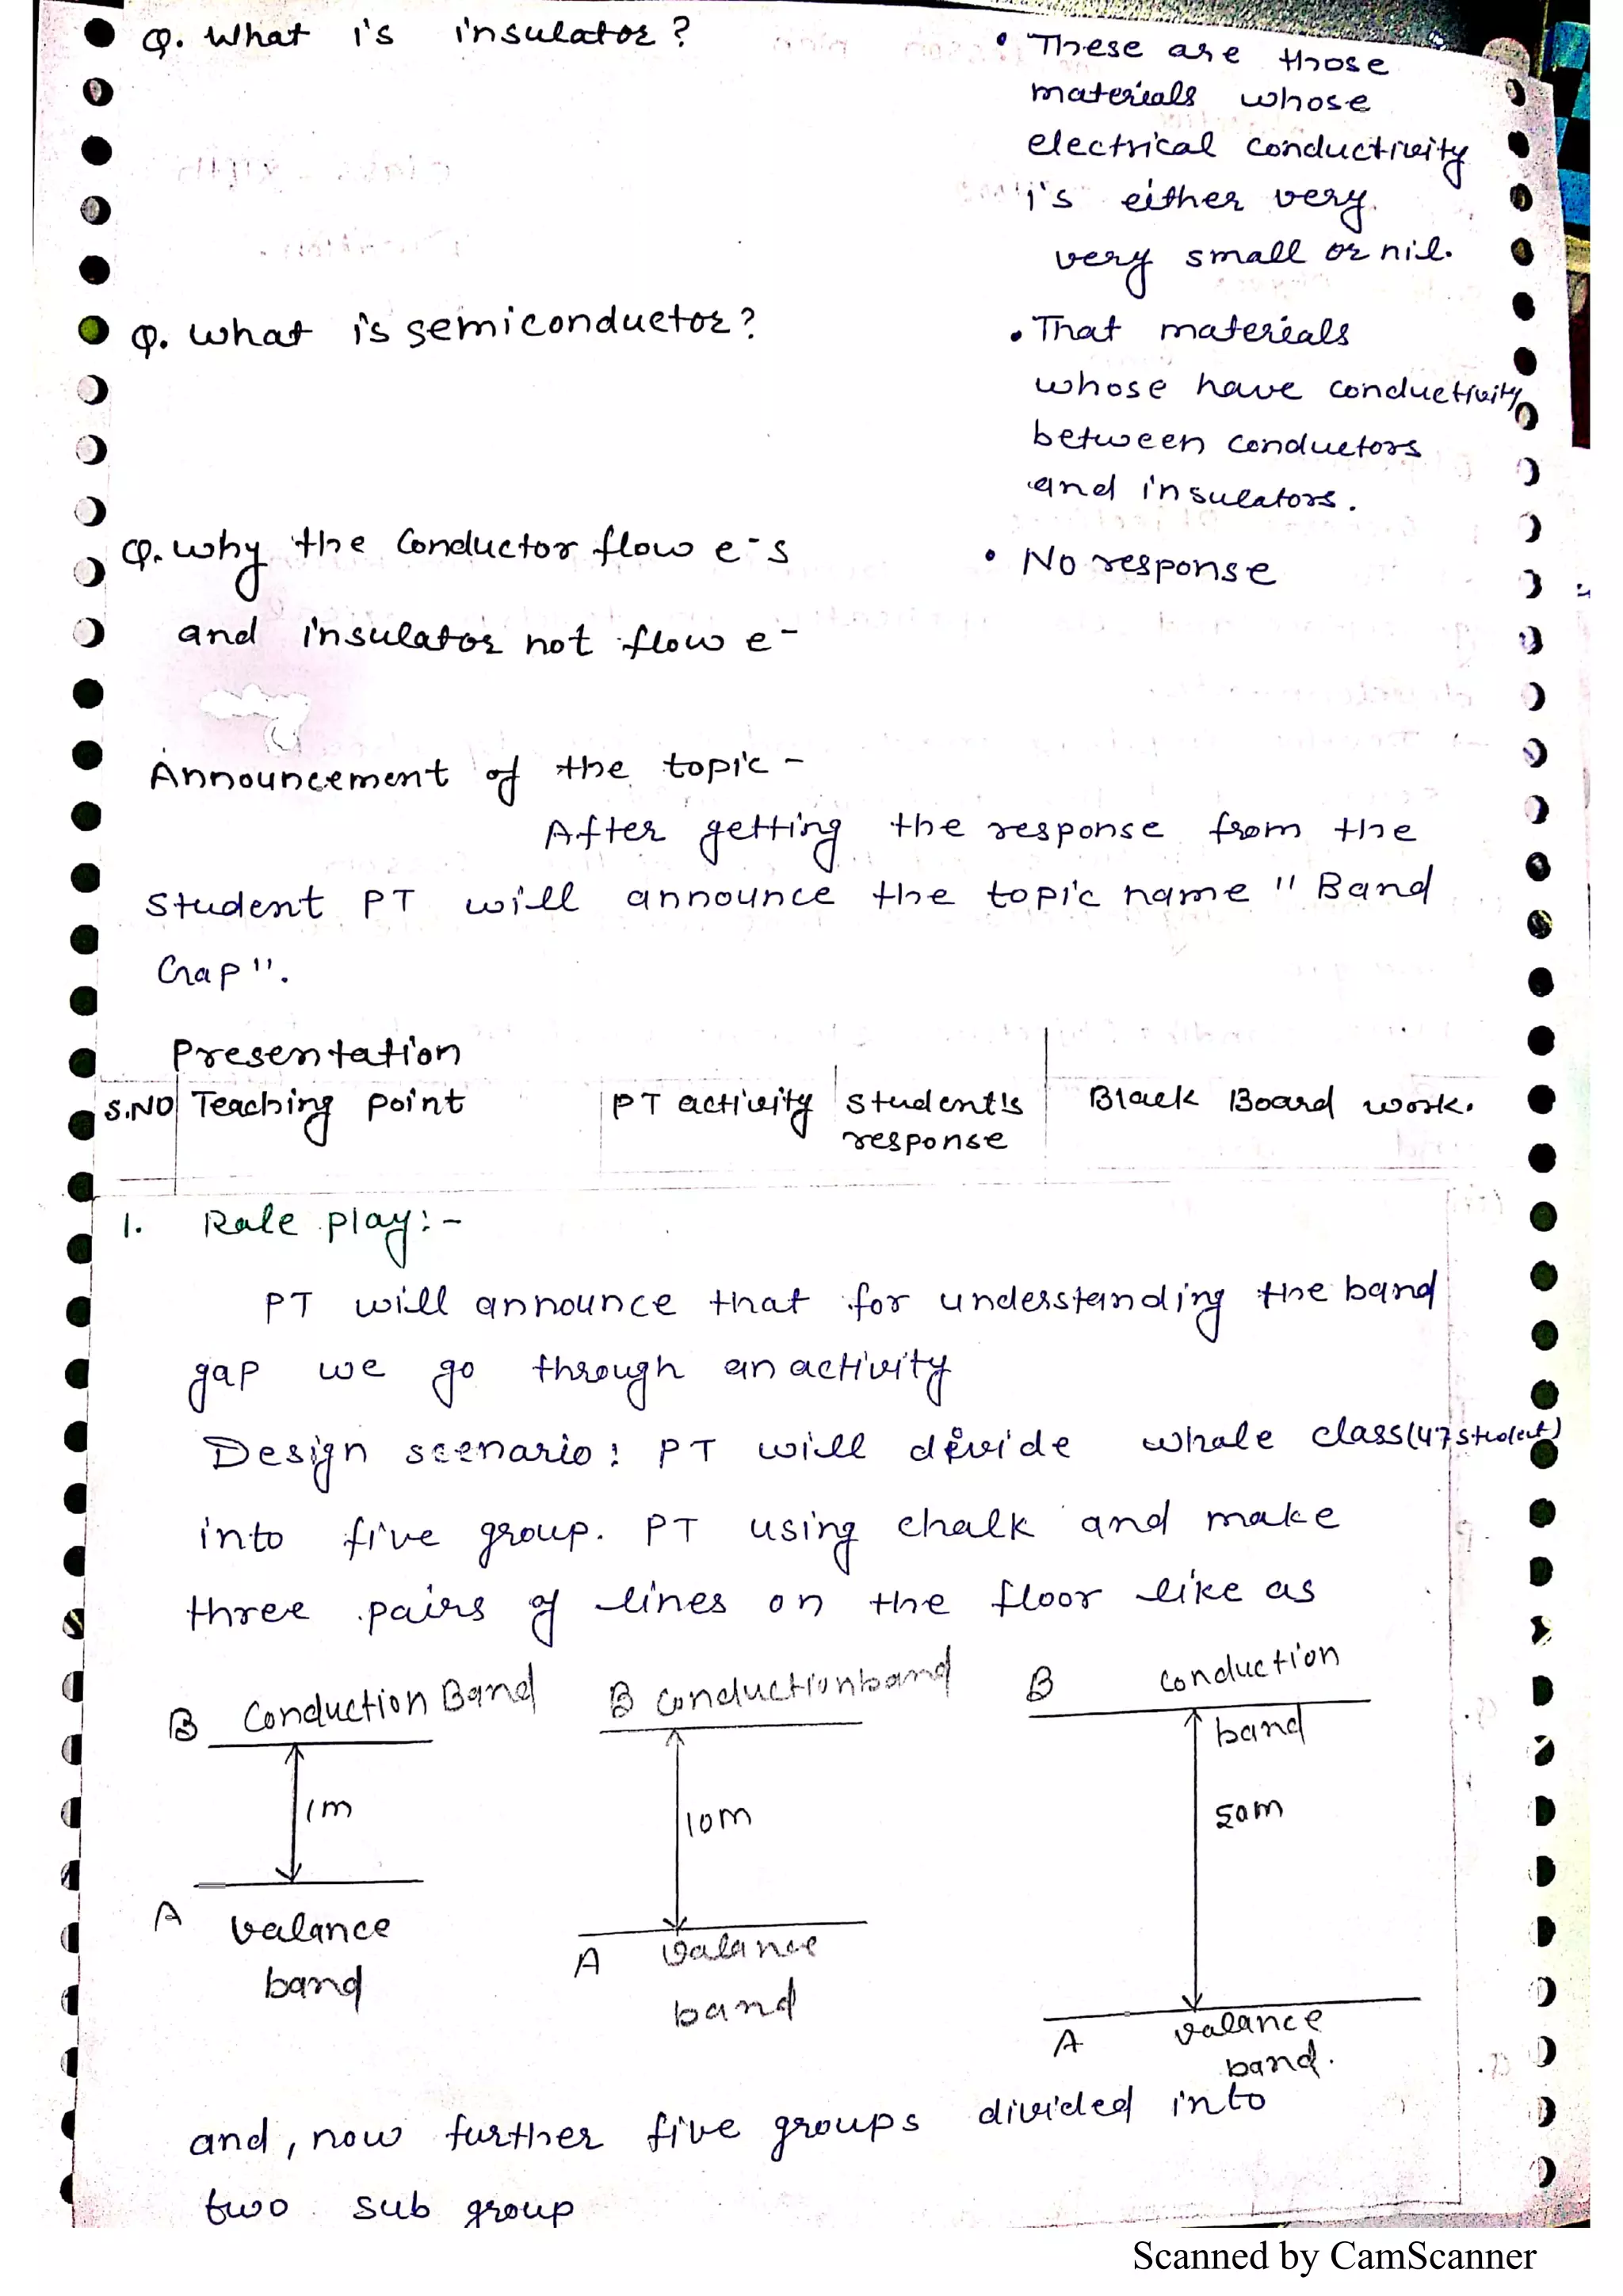 Q. What is insulator?
• These are those
materials whose
electrical conductivity
is either very
very small or nil.
Q. What is semiconductor?
• That materials
whose have conductivity
between conductors
and insulators.
Q. Why the Conductor flow e⁻s
and insulator not flow e⁻
• No response
Announcement of the topic -
After getting the response from the
student PT will announce the topic name "Band
Gap".
Presentation
S.NO Teaching point PT activity student's response Black Board work.
1. Role play:-
PT will announce that for understanding the band
gap we go through an activity
Design scenario: PT will divide whole class (47 student)
into five group. PT using chalk and make
three pairs of lines on the floor like as
B Conduction Band B Conduction band B conduction
band
1m 10m 50m
A valance
band
A valance
band
A valance
band.
and, now further five groups divided into
two sub group
Scanned by CamScanner